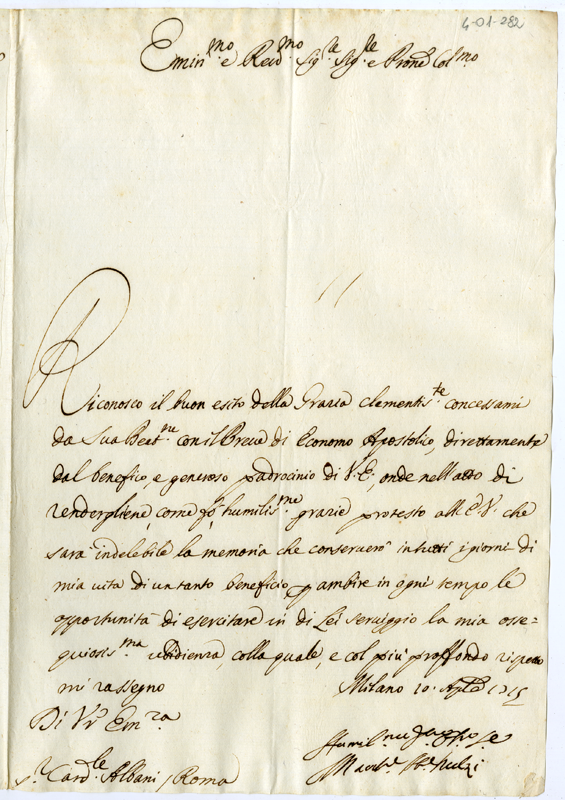 4-01-282
Emin.mo e Rev.mo Sig.re Sig.re e Pron Col.mo
Riconosco il buon esito della Grazia clementis.te concessami
da Sua Beat.ne con il Breve di Economo Apostolico, direttamente
dal benefico, e generoso padrocinio di V.E., onde nell'atto di
rendergliene, come fò humilis.me grazie protesto all'E.V. che
sarà indelebile la memoria che conserverò in tutti i giorni di
mia vita di un tanto beneficio, p ambire in ogni tempo le
opportunità di esercitare in di Lei serviggio la mia osse=
quiosis.ma ubidienza, colla quale, e col più proffondo rispetto
mi rassegno
Milano 10. Aple 1715
Di V.ra Em.za
S.r Card.le Albani / Roma